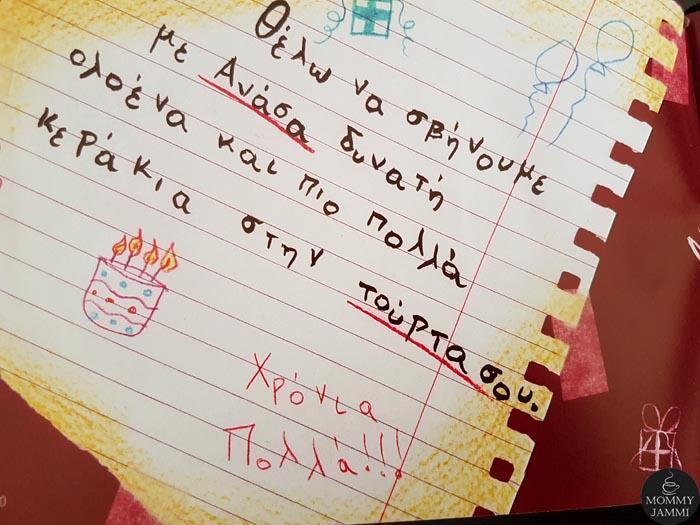 Θέλω να σβήνουμε
με Ανάσα δυνατή
ολοένα και πιο πολλά
κεράκια στην τούρτα σου.
Χρόνια
Πολλά!!!
MOMMY
JAMMI